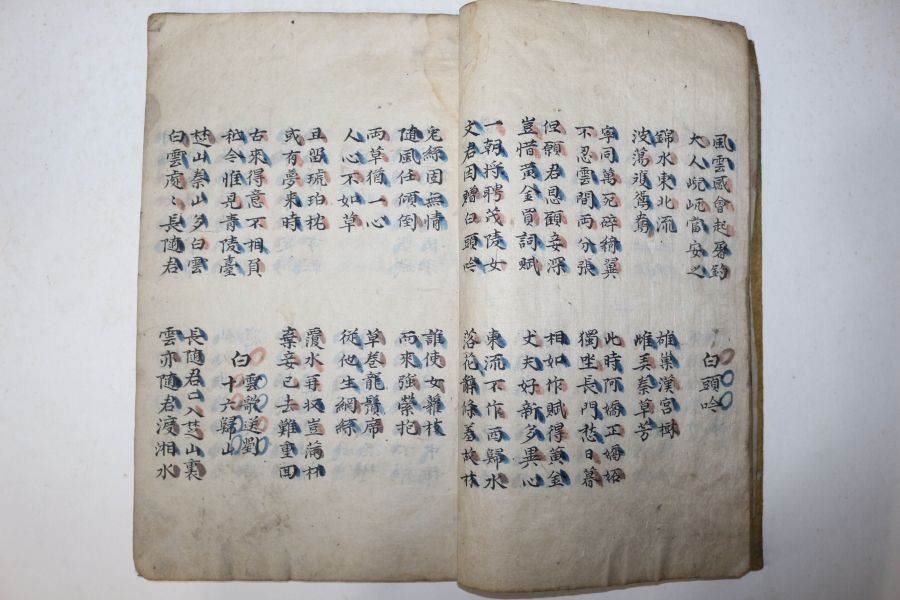 風雲感會起屠釣
大人屼當安之
白頭吟
錦水東北流
波蕩雙鴛鴦
雄巢漢宮樹
雌弄秦草芳
寧同萬死碎綺翼
不忍雲間兩分張
此時阿嬌正嬌妬
獨坐長門愁日暮
但願君恩顧妾深
豈惜黃金買詞賦
相如作賦得黃金
丈夫好新多異心
一朝將聘茂陵女
文君因贈白頭吟
東流不作西歸水
落花辭條羞故林
兔絲固無情
隨風任傾倒
誰使女蘿枝
而來強縈抱
兩草猶一心
人心不如草
草卷龍鬚席
從他生網絲
且留琥珀枕
或有夢來時
覆水再收豈滿杯
棄妾已去難重回
古來得意不相負
秪今惟見青陵臺
白雲歌送劉
十六歸山
楚山秦山多白雲
白雲處〻長隨君
長隨君〻入楚山裏
雲亦隨君渡湘水